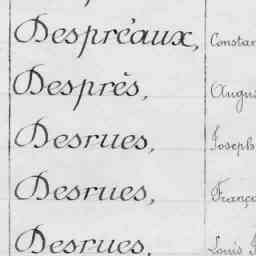 Despréaux, Constan
Després, Augus
Desrues, Joseph
Desrues, Franço
Desrues, Louis